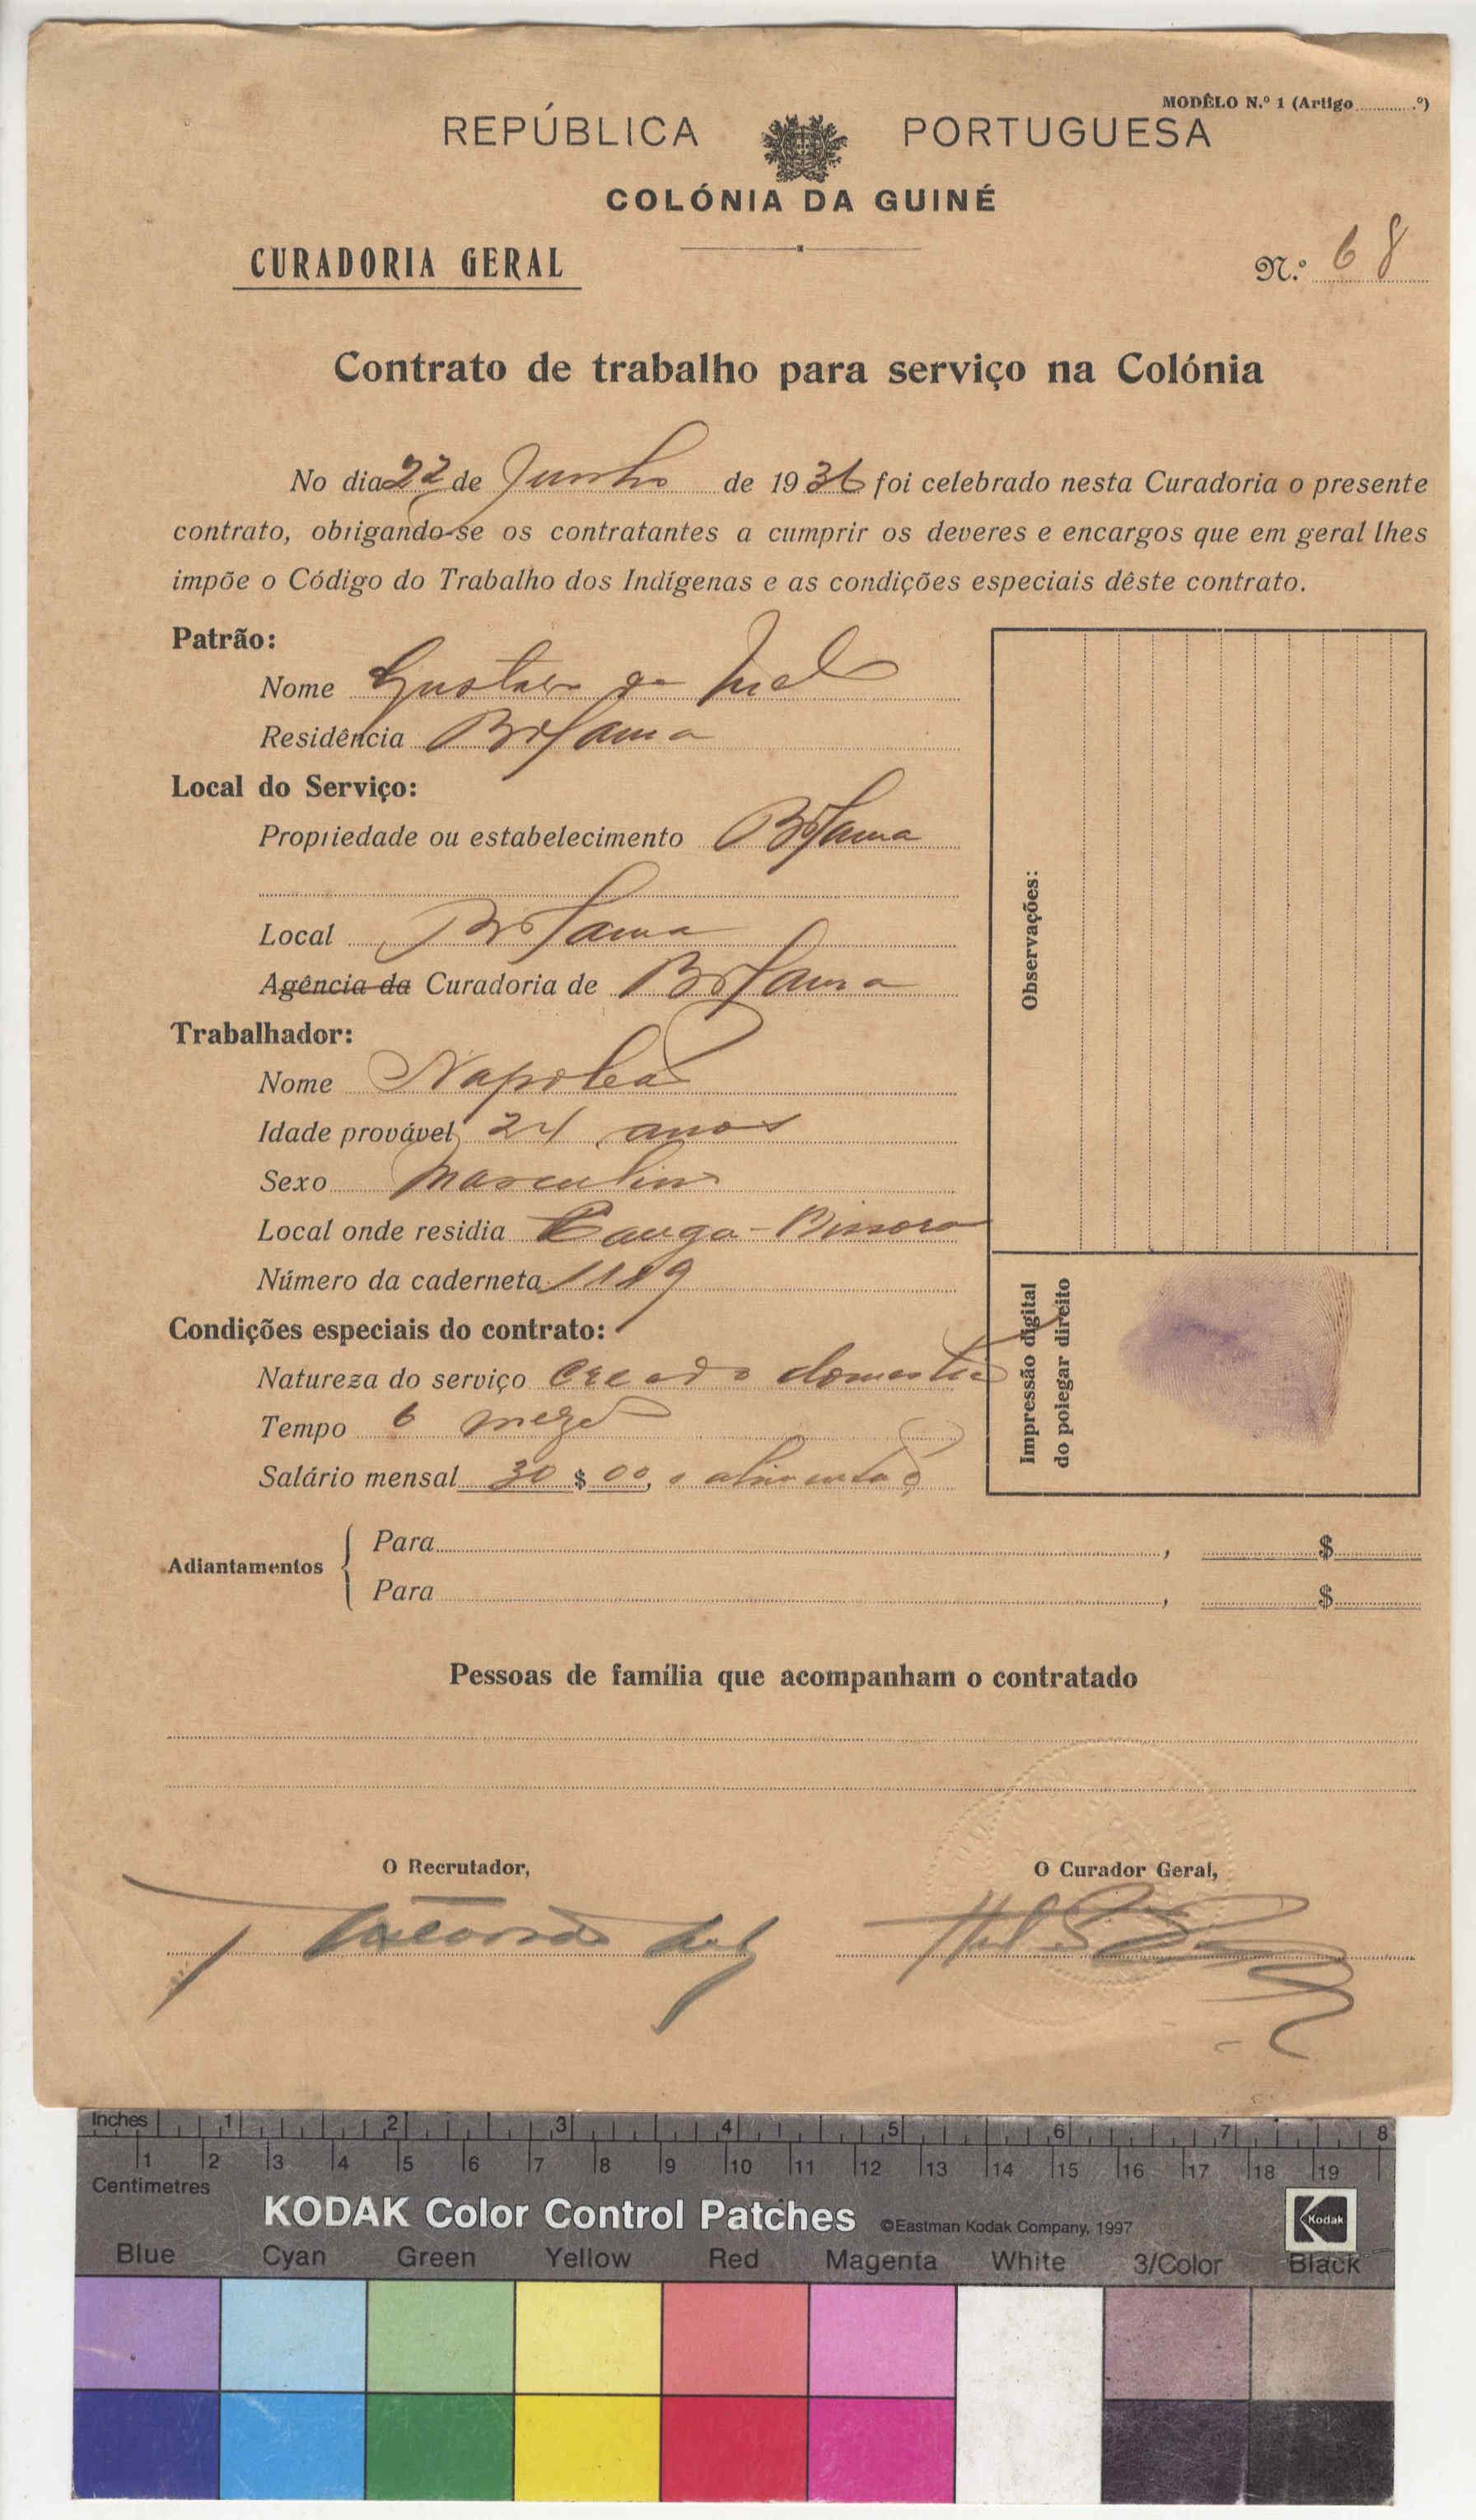 MODÊLO N.º 1 (Artigo .............º)
REPÚBLICA PORTUGUESA
COLÓNIA DA GUINÉ
CURADORIA GERAL
N.º 68
Contrato de trabalho para serviço na Colónia
No dia 22 de Junho de 1936 foi celebrado nesta Curadoria o presente
contrato, obrigando-se os contratantes a cumprir os deveres e encargos que em geral lhes
impõe o Código do Trabalho dos Indígenas e as condições especiais dêste contrato.
Patrão:
Nome Gustavo
Residência Bolama
Local do Serviço:
Propriedade ou estabelecimento Bolama
Local Bolama
Agência da Curadoria de Bolama
Trabalhador:
Nome Napoleão
Idade provável 24 anos
Sexo Masculino
Local onde residia
Número da caderneta 1189
Condições especiais do contrato:
Natureza do serviço Creado domestico
Tempo 6 mezes
Salário mensal 30$00, e alimentação
Observações:
Impressão digital
do polegar direito
Adiantamentos
Para , $
Para , $
Pessoas de família que acompanham o contratado
O Recrutador,
O Curador Geral,
Inches 1 2 3 4 5 6 7 8
1 2 3 4 5 6 7 8 9 10 11 12 13 14 15 16 17 18 19
Centimetres
KODAK Color Control Patches ©Eastman Kodak Company, 1997 Kodak
Blue Cyan Green Yellow Red Magenta White 3/Color Black